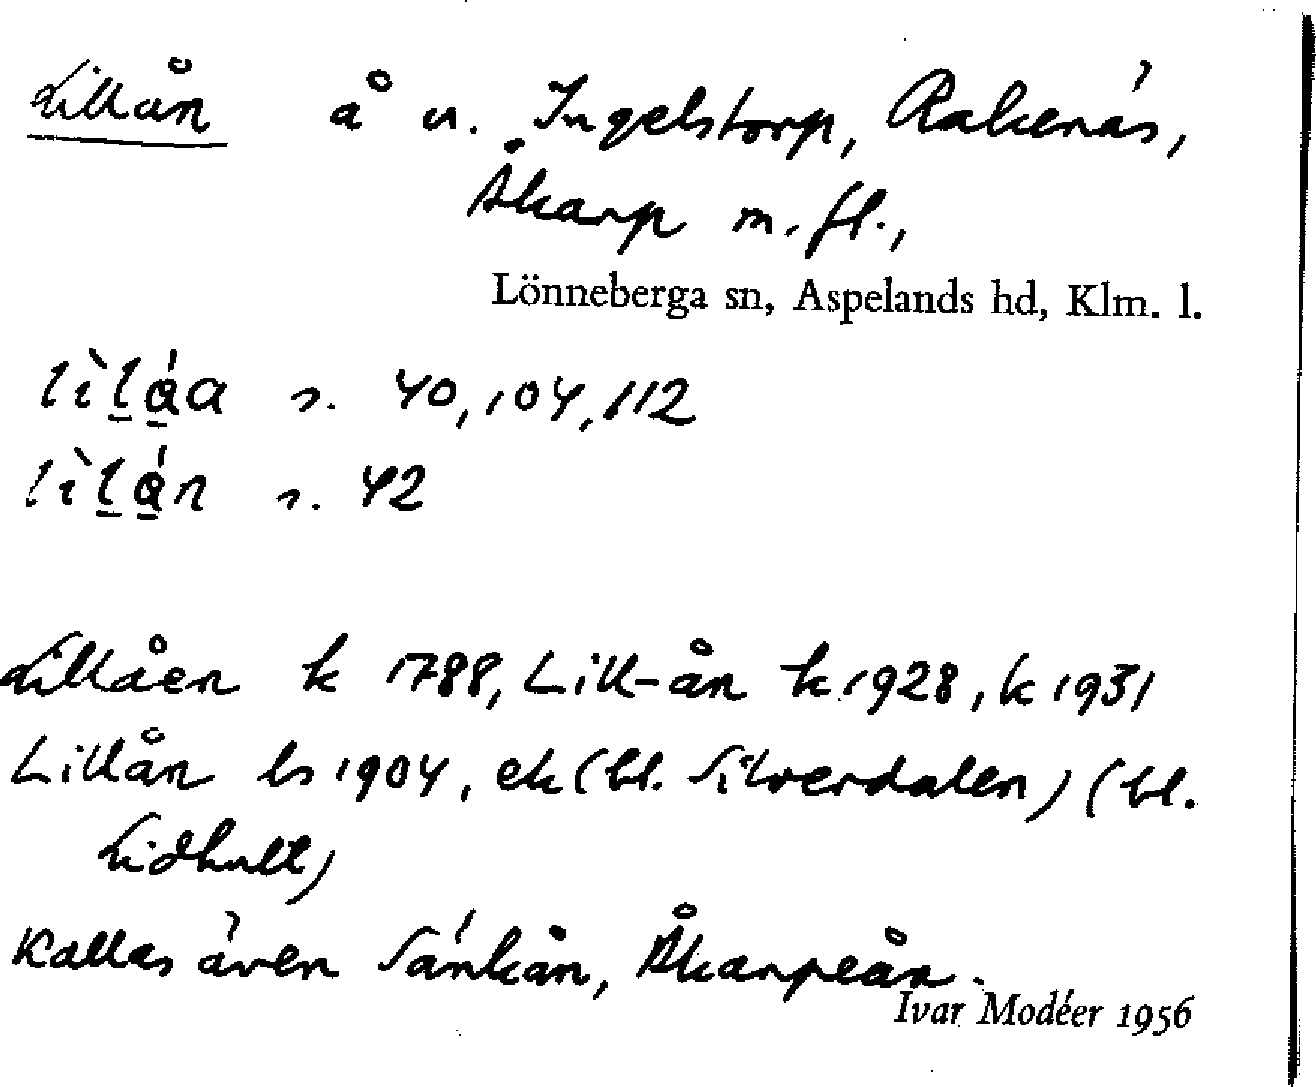 Lillån å u. Ingelstorp, Rakenäs,
Åkarp m. fl.,
Lönneberga sn, Aspelands hd, Klm. l.
s. 40, 104, 112
s. 42
Lillåen k 1788, Lill-ån k 1928, k 1931
Lillån ls 1904, ek (bl. Silverdalen) (bl.
Lidhult)
Kallas även Sänkån, Åkarpeån.
Ivar Modéer 1956